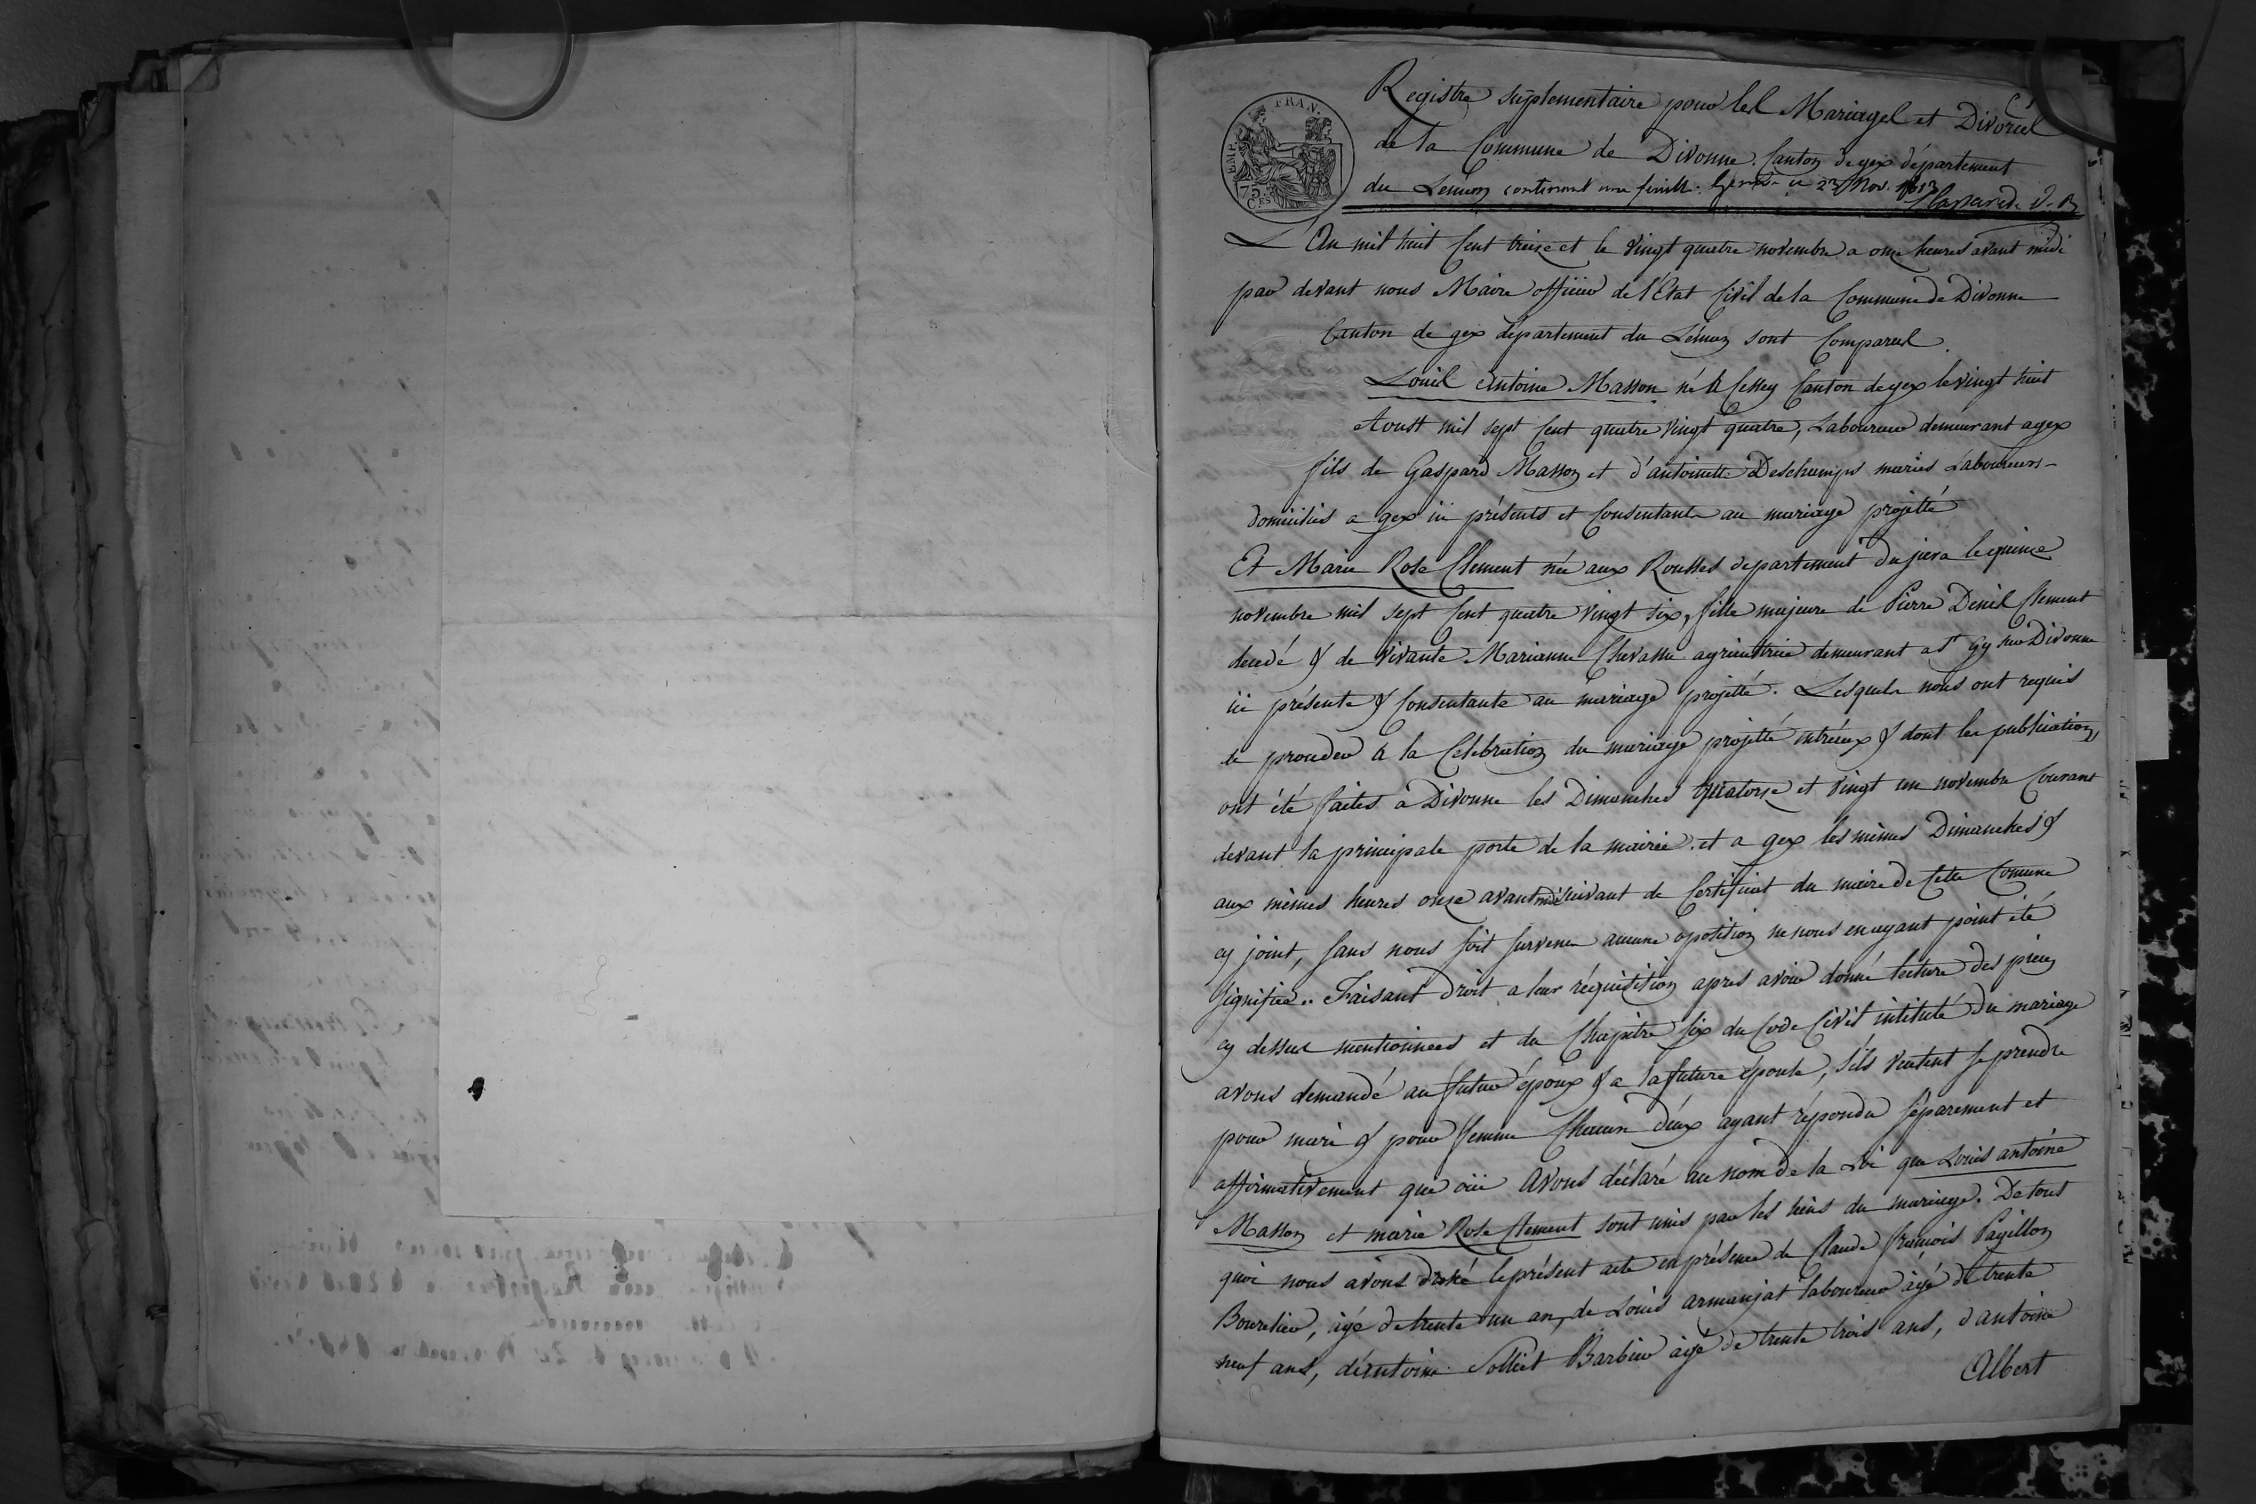 Registre suplementaire pour les Mariages et Divorces
de la Commune de Divonne. Canton de gex département
du Leman contenant une feuille. Genève le 23 Nov. 1813
EMP. FRAN.
75
CES
L'An mil huit Cent treize et le vingt quatre novembre a onze heures avant midi
par devant nous Maire officier de l'État Civil de la Commune de Divonne
Canton de gex département du Léman sont Comparus.
Louis Antoine Masson né à Cessy Canton de gex le vingt huit
Aoust mil sept Cent quatre vingt quatre, Laboureur demeurant a gex
fils de Gaspard Masson et d'antoinette Deschamps mariés Laboureurs
domiciliés a gex ici présents et Consentants au mariage projetté
Et Marie Rose Clement née aux Rousses departement du jura le quinze
novembre mil sept Cent quatre vingt six, fille majeure de Pierre Denis Clement
decedé & de vivante Marianne Chevassu agricultrice demeurant a St Gy sur Divonne
ici présente & Consentante au mariage projetté. Lesquels nous ont requis
de proceder à la Celebration du mariage projetté entréeux & dont les publications
ont été faites à Divonne les Dimanches Quatorze et vingt un novembre Courant
devant la principale porte de la mairie. et a gex les mêmes Dimanches &
aux mêmes heures onze avant midi suivant de Certificat du maire de Cette Comune
cy joint, sans nous soit survenu aucune oposition ne nous en ayant point été
signifiée.. Faisant Droit a leur réquisition apres avoir donné lecture des pieces
cy dessus mentionnees et du Chapitre six du Code Civil intitulé Du mariage
avons demandé au futur époux & a la future épouse, s'ils veulent se prendre
pour mari & pour femme Chacun d'eux ayant répondu séparement et
affirmativement que oüi Avons déclaré au nom de la Loi que Louis antoine
Masson et marie Rose Clement sont unis par les liens du mariage. De tout
quoi nous avons dressé le présent acte en présence de Claude françois Papillon
Bourelier, âgé de trente un an, de Louis armanjat laboureur âgé de trente
neuf ans, d'antoine Solliet Barbier âgé de trente trois ans, d'antoine
Albert